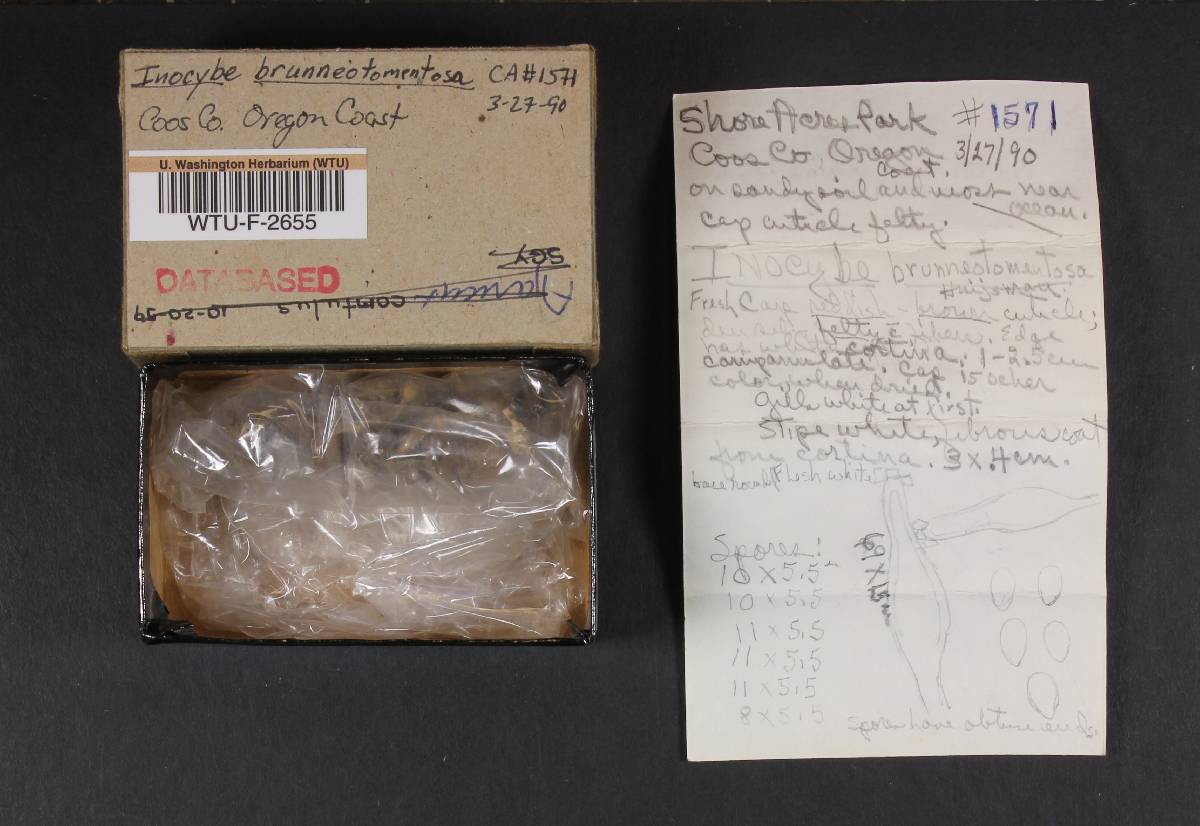 Inocybe brunneotomentosa CA#1571
3-27-90
Coos Co. Oregon Coast
U. Washington Herbarium (WTU)
WTU-F-2655
DATABASED
567
Agaricus comtulus 10-20-59
Shore Acres Park #1571
Coos Co, Oregon 3/27/90
Coast.
on sandy soil and most near
ocean.
Cap cuticle felty.
Inocybe brunneotomentosa
Huijsman.
Fresh Cap reddish-brown cuticle;
felty Edge
has white cortina, 1-2.5cm
campanulate. Cap
color when dried, 15 ocher
Gills white at first.
Stipe white, fibrous coat
from cortina. 3 x .4cm.
base round Flesh white
Spores:
10 x 5.5
10 x 5.5
11 x 5.5
11 x 5.5
11 x 5.5
8 x 5.5
69 x 15
Spores have obtuse ends.